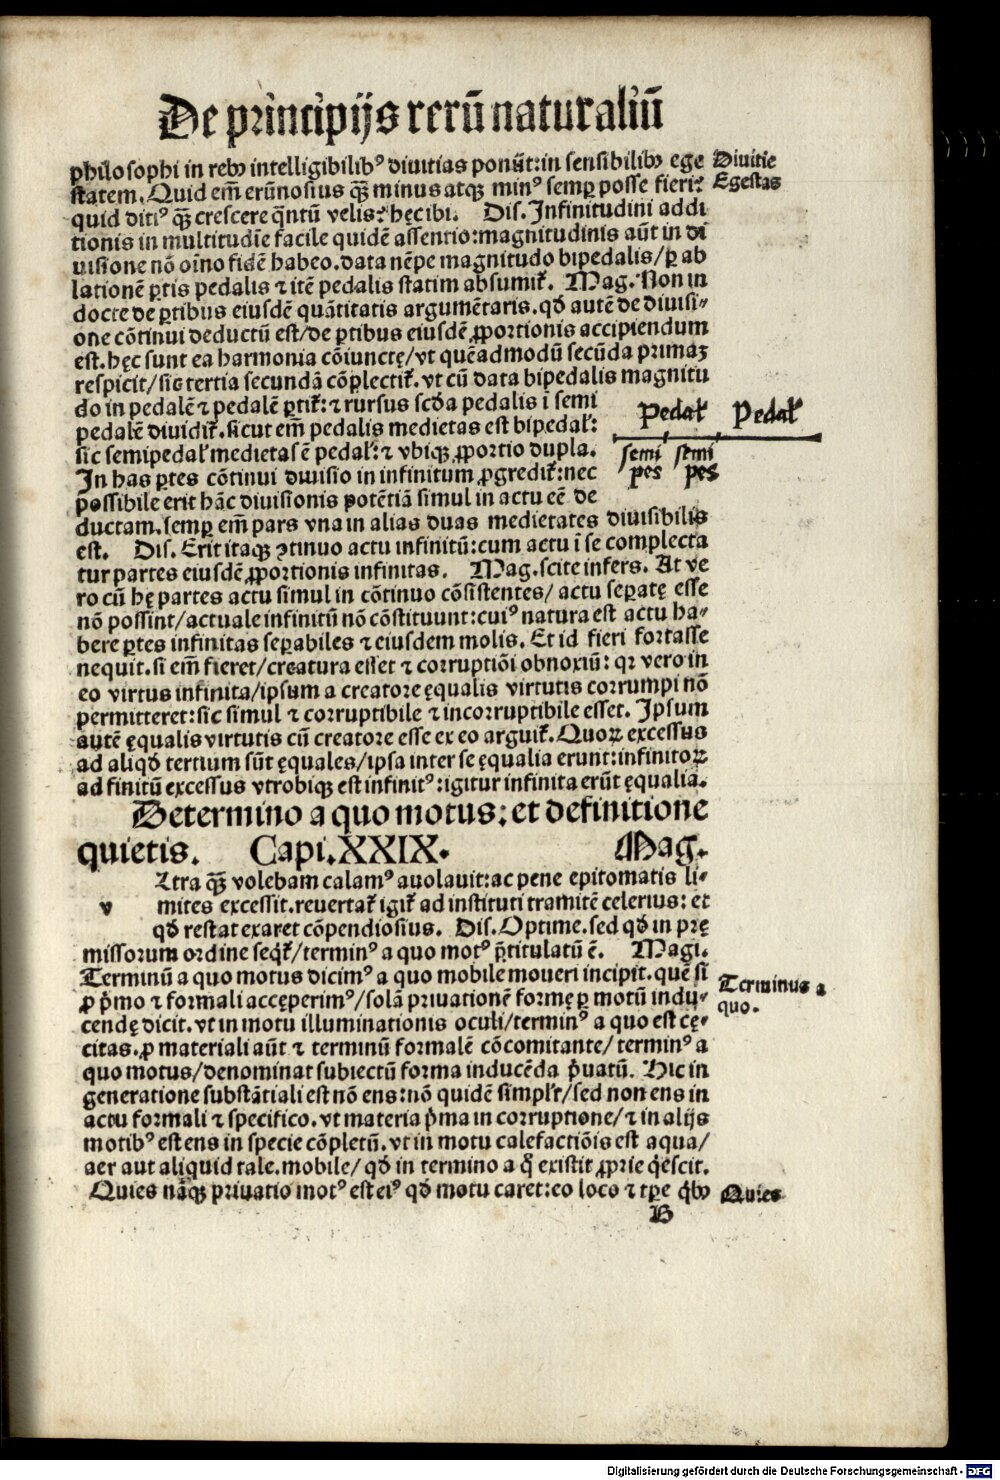 De principijs rerū naturaliū
philosophi in rebꝰ intelligibilibꝰ diuitias ponūt:in sensibilibꝰ ege
Diuitie
statem. Quid em̄ erūnosius qꝫ minus atqꝫ minꝰ semꝑ posse fieri?
Egestas
quid ditiꝰ qꝫ̄ crescere q̄ntū velis? hęcibi. Dis. Infinitudini addi
tionis in multitudīe facile quidē assentio:magnitudinis aūt in di
uisione nō oīno fidē habeo. data nēpe magnitudo bipedalis/ꝑ ab
lationē ꝑtis pedalis ⁊ itē pedalis statim absumit̄. Mag. Non in
docte de ꝑtibus eiusdē quātitatis argumētaris. qd̄ autē de diuisi-
one cōtinui deductū est/de ꝑtibus eiusdē ꝓportionis accipiendum
est. hęc sunt ea harmonia cōiunctę/vt quēadmodū secūda primaꝫ
respicit/sic tertia secundā cōplectit̄. vt cū data bipedalis magnitu
do in pedalē ⁊ pedalē ꝑtit̄: ⁊ rursus scd̄a pedalis ī semi
pedalē diuidit̄. sicut em̄ pedalis medietas est bipedal̄:
sic semipedal̄ medietas ē pedal̄: ⁊ vbiqꝫ ꝓportio dupla.
In has ꝑtes cōtinui diuisio in infinitum ꝓgredit̄: nec
possibile erit hāc diuisionis potētiā simul in actu eē de
Pedal̄ Pedal̄
semi semi
pes pes
ductam. semꝑ em̄ pars vna in alias duas medietates diuisibilis
est. Dis. Erit itaqꝫ ꝯtinuo actu infinitū: cum actu ī se complecta
tur partes eiusdē ꝓportionis infinitas. Mag. scite infers. At ve
ro cū hę partes actu simul in cōtinuo cōsistentes/ actu seꝑatę esse
nō possint/actuale infinitū nō cōstituunt: cuiꝰ natura est actu ha-
bere ꝑtes infinitas seꝑabiles ⁊ eiusdem molis. Et id fieri fortasse
nequit. si em̄ fieret/creatura esset ⁊ corruptiōi obnoxiū: qꝛ vero in
eo virtus infinita/ipsum a creatore ęqualis virtutis corrumpi nō
permitteret: sic simul ⁊ corruptibile ⁊ incorruptibile esset. Ipsum
autē ęqualis virtutis cū creatore esse ex eo arguit̄. Quoꝝ excessus
ad aliqd̄ tertium sūt ęquales/ipsa inter se ęqualia erunt: infinitoꝝ
ad finitū excessus vtrobiqꝫ est infinitꝰ: igitur infinita erūt ęqualia.
De termino a quo motus: et definitione
quietis. Capi. XXIX. Mag.
v
Ltra qꝫ̄ volebam calamꝰ auolauit: ac pene epitomatis li-
mites excessit. reuertat̄ igit̄ ad instituti tramitē celerius: et
qd̄ restat exaret cōpendiosius. Dis. Optime. sed qd̄ in prę
missorum ordine seqt̄/terminꝰ a quo motꝰ p̄titulatū ē. Magi.
Terminū a quo motus dicimꝰ a quo mobile moueri incipit. quē si
Terminus a
ꝓ p̄mo ⁊ formali accęperimꝰ/solā priuationē formę ꝑ motū indu-
quo.
cendę dicit. vt in motu illuminationis oculi/terminꝰ a quo est cę-
citas. ꝓ materiali aūt ⁊ terminū formalē cōcomitante/ terminꝰ a
quo motus/denominat subiectū forma inducēda p̄uatū. Hic in
generatione substātiali est nō ens: nō quidē simpl̄r/sed non ens in
actu formali ⁊ specifico. vt materia p̄ma in corruptione/⁊ in alijs
motibꝰ est ens in specie cōpletū. vt in motu calefactiōis est aqua/
aer aut aliquid tale. mobile/ qd̄ in termino a q̄ existit ꝓprie q̄escit.
Quies nāqꝫ priuatio motꝰ est eiꝰ qd̄ motu caret: eo loco ⁊ tꝑe q̄bꝰ
Quies
B
Digitalisierung gefördert durch die Deutsche Forschungsgemeinschaft - DFG